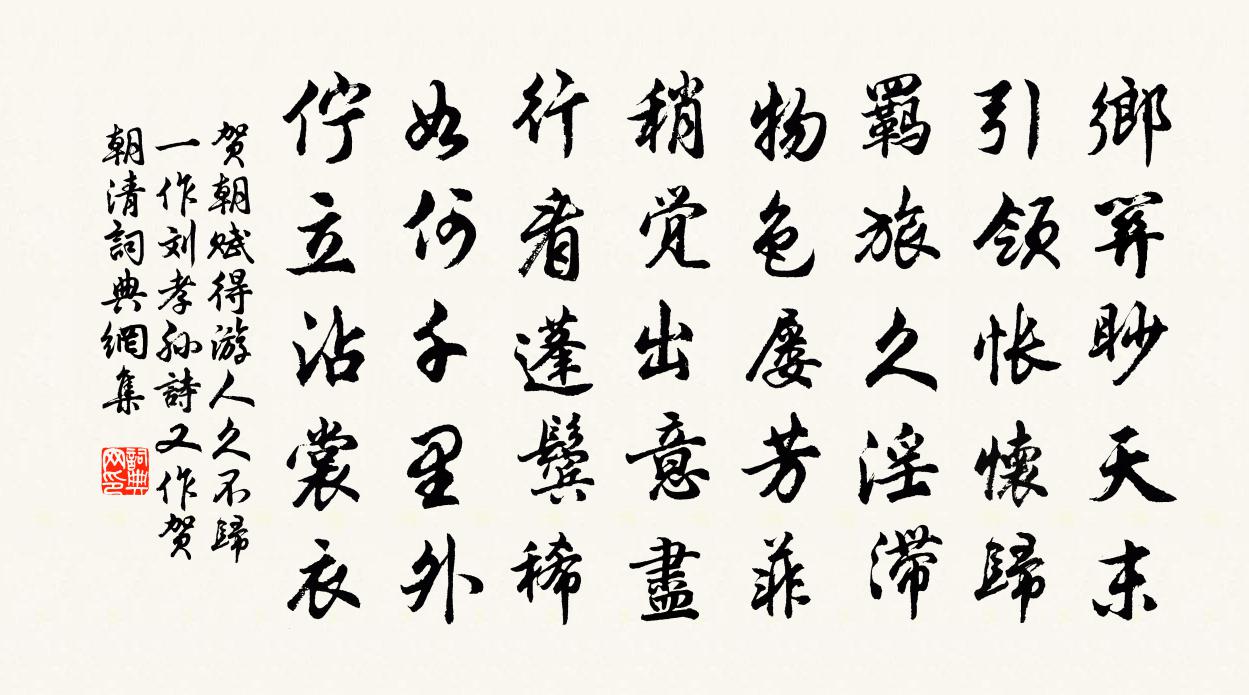 鄉關眇天末
引領怅懷歸
羈旅久淫滯
物色屢芳菲
稍覚出意盡
行看蓬鬢稀
如何千里外
佇立沾裳衣
贺朝赋得游人久不歸
一作刘孝孙詩又作贺
朝清詞典網集
詞典网印